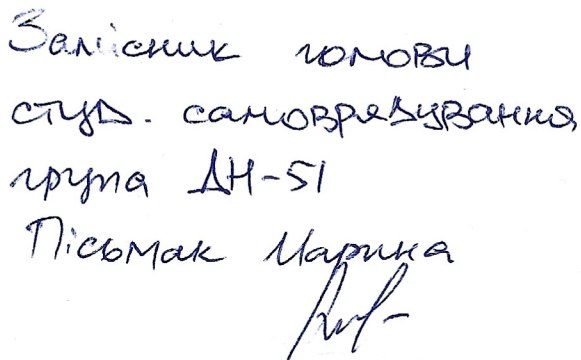 Замісник голови
студ. самоврядування
група ДН-51
Пісьмак Марина